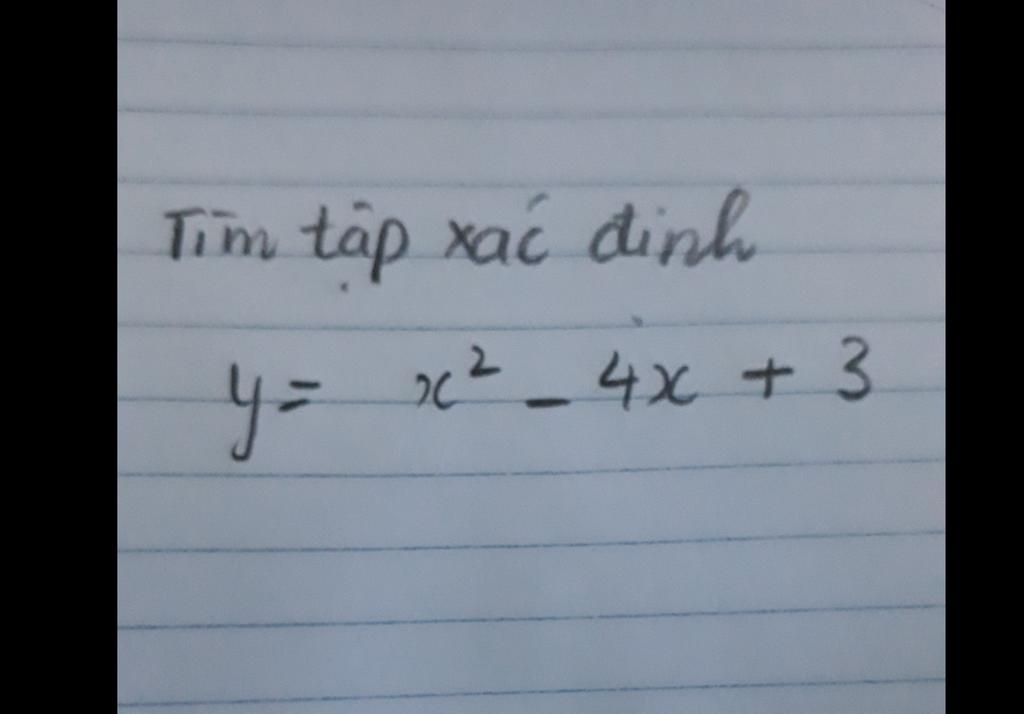 Tìm tập xác định
y = x² - 4x + 3